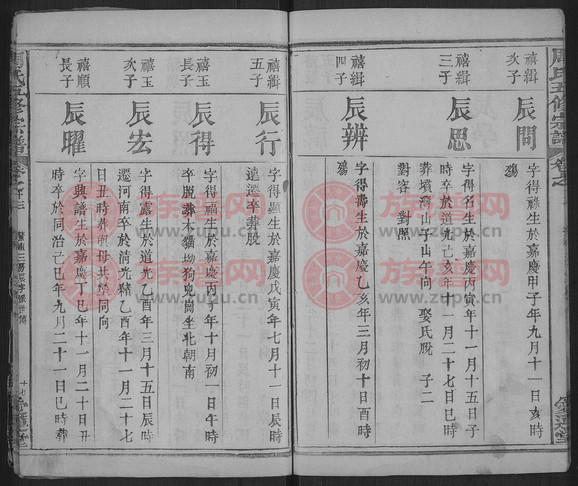 周氏五修宗譜
禧緝
次子
辰問
字得祿生於嘉慶甲子年九月十一日亥時
殤
禧緝
三子
辰思
字得名生於嘉慶丙寅年十一月十五日子
時卒於道光己亥年十一月二十七日巳時
葬墳灣山子山午向 娶氏脫 子二
客 對照
禧緝
四子
辰辨
字得壽生於嘉慶乙亥年三月初十日酉時
殤
禧緝
五子
辰行
字得顯生於嘉慶戊寅年七月十一日辰時
遠遊卒葬脫
禧玉
長子
辰得
字得福生於嘉慶丙子年十月初一日午時
卒脫葬木貓坳狗兒崗生北朝南
禧玉
次子
辰宏
字得露生於道光乙酉年三月十五日辰時
遷河南卒於清光緒乙酉年十一月二十七
日丑時葬與母共塋同向
禧順
長子
辰曜
字興譜生於嘉慶丁巳年十一月二十日丑
時卒於同治己巳年九月二十一日巳時葬
周氏五修宗譜
愛蓮堂
族譜网
www.zupu.cn